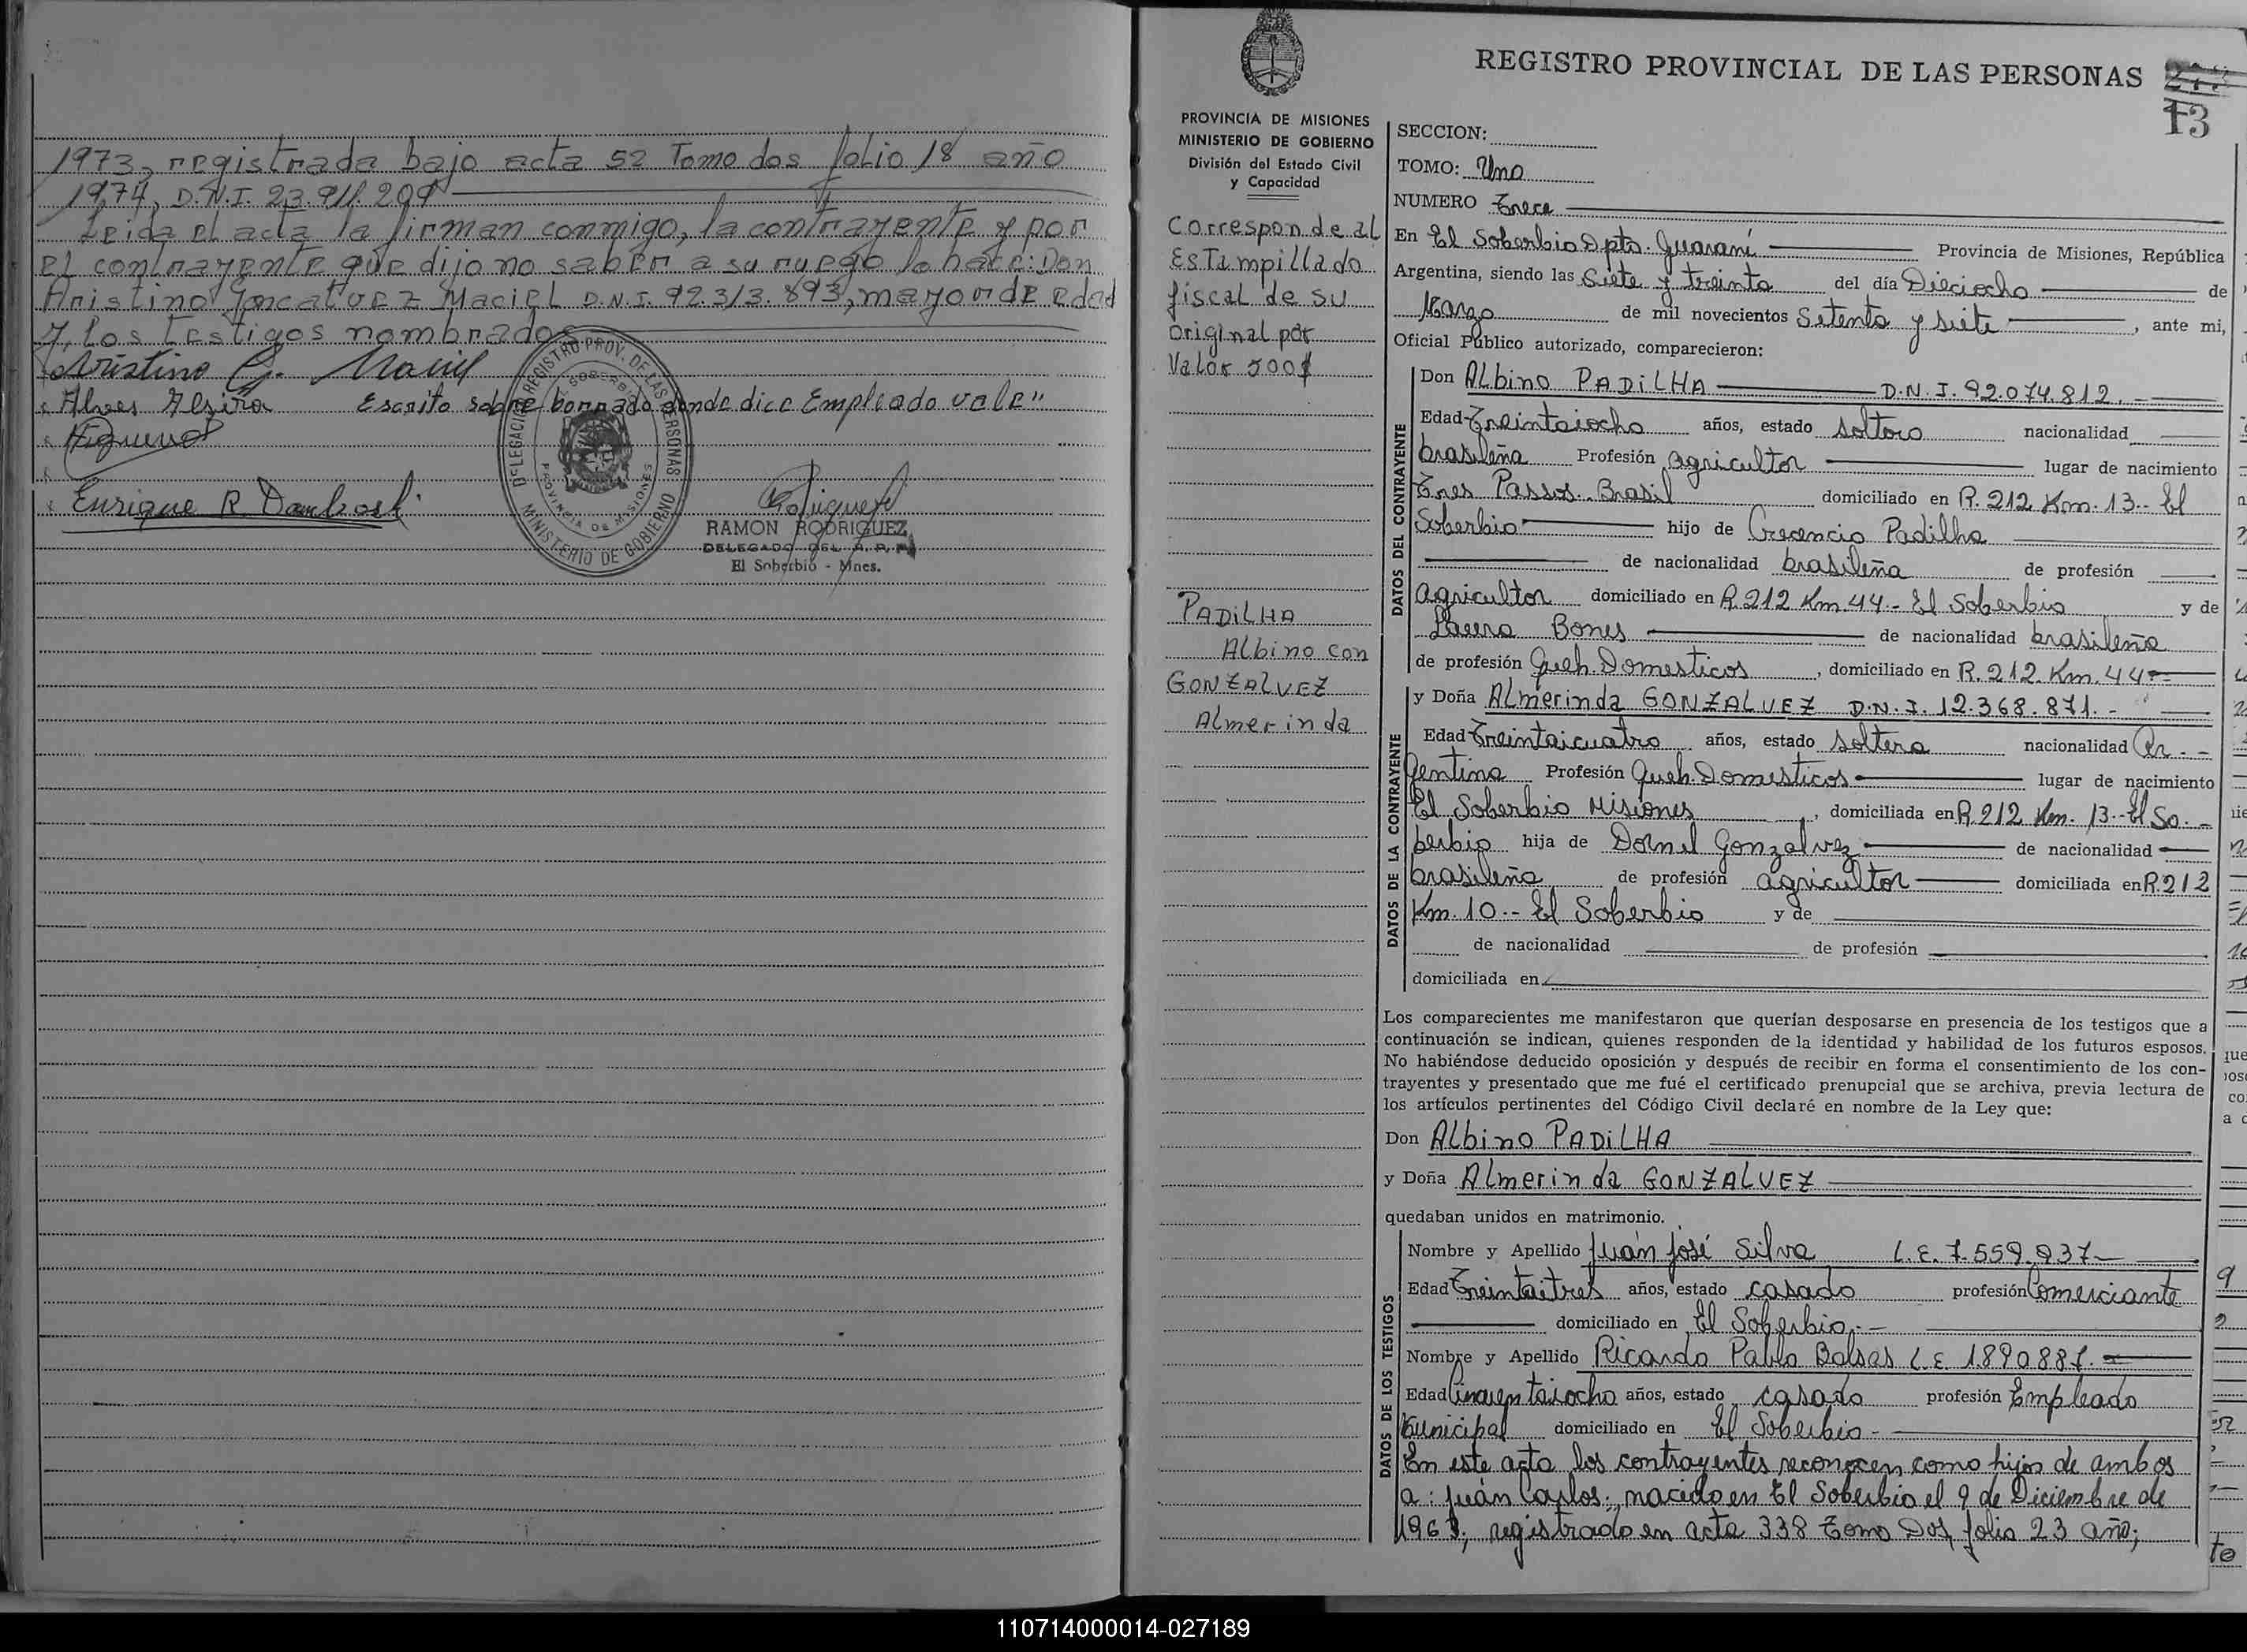 1973, registrada bajo acta 52 Tomo dos folio 18 año
1974, D.N.I. 23.911.209
Leida el acta la firman conmigo, la contrayente y por
el contrayente que dijo no saber a su ruego lo hace: Don
Aristino Goncalvez Maciel D.N.I. 92.313.893, mayor de edad
y, los testigos nombrados
Aristino G. Maciel
Alves Alzira Escrito sobre borrado donde dice Empleado vale"
Enrique R.
DELEGACION REGISTRO PROV. DE LAS PERSONAS
EL SOBERBIO
PROVINCIA DE MISIONES
MINISTERIO DE GOBIERNO
RAMON RODRIGUEZ
DELEGADO DEL R. P. P.
El Soberbio - Mnes.
REGISTRO PROVINCIAL DE LAS PERSONAS
13
PROVINCIA DE MISIONES
MINISTERIO DE GOBIERNO
División del Estado Civil
y Capacidad
Corresponde al
Estampillado
fiscal de su
Original por
Valor 500$
PADiLHA
Albino con
GONZALVEZ
Almerinda
SECCION:
TOMO: Uno
NUMERO Trece
En El Soberbio Dpto. Guaraní Provincia de Misiones, República
Argentina, siendo las Siete y treinta del día Dieciocho de
Marzo de mil novecientos Setenta y siete, ante mi,
Oficial Público autorizado, comparecieron:
DATOS DEL CONTRAYENTE
Don Albino PADiLHA D.N.I. 92.074.812.-
Edad Treintaiocho años, estado soltero nacionalidad
brasileña Profesión agricultor lugar de nacimiento
Tres Passos. Brasil domiciliado en R. 212 Km. 13.- El
Soberbio hijo de Crecencio Padilha
de nacionalidad brasileña de profesión
agricultor domiciliado en R. 212 Km. 44.- El Soberbio y de
Laura Bones de nacionalidad brasileña
de profesión Queh. Domesticos, domiciliado en R. 212. Km. 44.-
DATOS DE LA CONTRAYENTE
y Doña Almerinda GONZALVEZ D.N.I. 12.368.871.-
Edad Treintaicuatro años, estado soltera nacionalidad Ar.-
gentina Profesión Queh. Domesticos lugar de nacimiento
El Soberbio Misiones, domiciliada en R. 212 Km. 13.- El So.-
berbio hija de Dornel Gonzalvez de nacionalidad
brasileña de profesión agricultor domiciliada en R. 212
Km. 10.- El Soberbio y de
de nacionalidad de profesión
domiciliada en
Los comparecientes me manifestaron que querían desposarse en presencia de los testigos que a
continuación se indican, quienes responden de la identidad y habilidad de los futuros esposos.
No habiéndose deducido oposición y después de recibir en forma el consentimiento de los con-
trayentes y presentado que me fué el certificado prenupcial que se archiva, previa lectura de
los artículos pertinentes del Código Civil declaré en nombre de la Ley que:
Don Albino PADiLHA
y Doña Almerinda GONZALVEZ
quedaban unidos en matrimonio.
DATOS DE LOS TESTIGOS
Nombre y Apellido Juan José Silva L.E. 7.559.937
Edad Treintaitres años, estado casado profesión Comerciante
domiciliado en El Soberbio.-
Nombre y Apellido Ricardo Pablo Balsas L.E. 1890887.
Edad Cincuentaiocho años, estado casado profesión Empleado
Municipal domiciliado en El Soberbio.-
En este acto los contrayentes reconocen como hijos de ambos
a: Juan Carlos., nacido en El Soberbio el 9 de Diciembre de
registrado en acta 338 Tomo Dos folio 23 año;
110714000014-027189